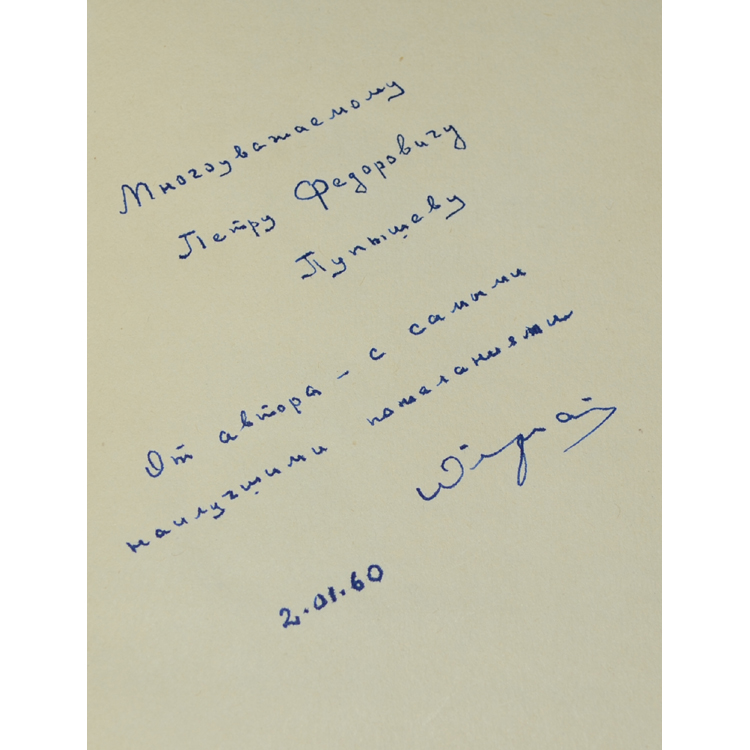 Многоуважаемому
Петру Федоровичу
Пупышеву
От автора - с самыми
наилучшими пожеланиями
2.01.60